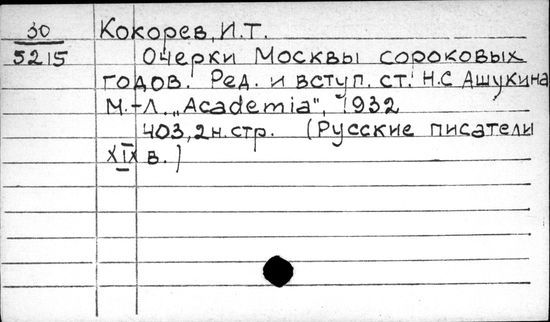 30 Кокорев, И.Т.
5215 Очерки Москвы сороковых
годов. Ред. и вступ. ст. Н.С Ашукина
М.-Л. „Academia", 1932
403,2н.стр. (Русские писатели
XIX в.)